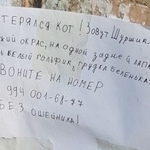 ТЕРЯЛСЯ КОТ! ЗОВУТ ШУРШИК.
ИЙ ОКРАС, НА ОДНОЙ ЗАДНЕЙ ЛАПЕ
БЕЛЫЙ ГОЛЬФИК, ГРУДКА БЕЛЕНЬКА
ВОНИТЕ НА НОМЕР
994 001-61-77
БЕЗ ОШЕЙНИКА!